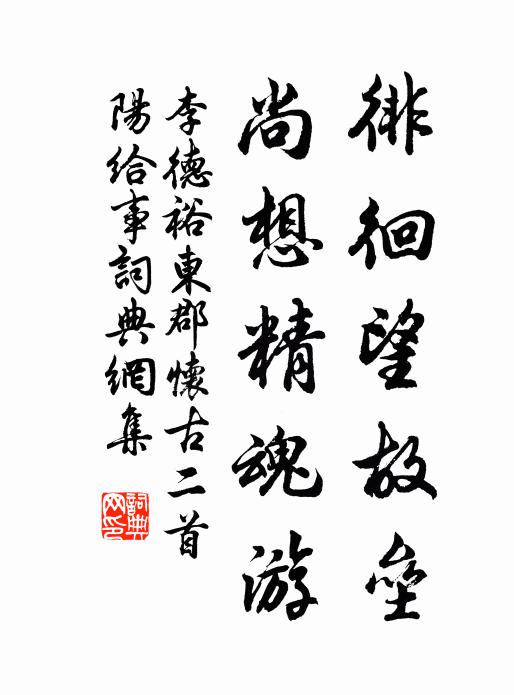 徘徊望故壘
尚想精魂游
李德裕東郡懷古二首
陽給事詞典網集
詞典
网印